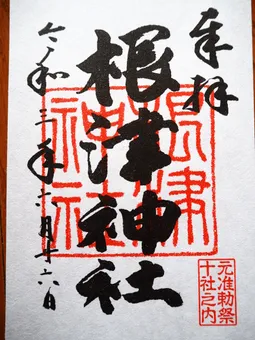 奉拝
根津神社
令和三年六月十六日
根津
神社
元准勅祭
十社之内